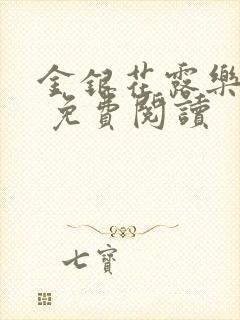 金銀花露樂
免費閱讀
七寶